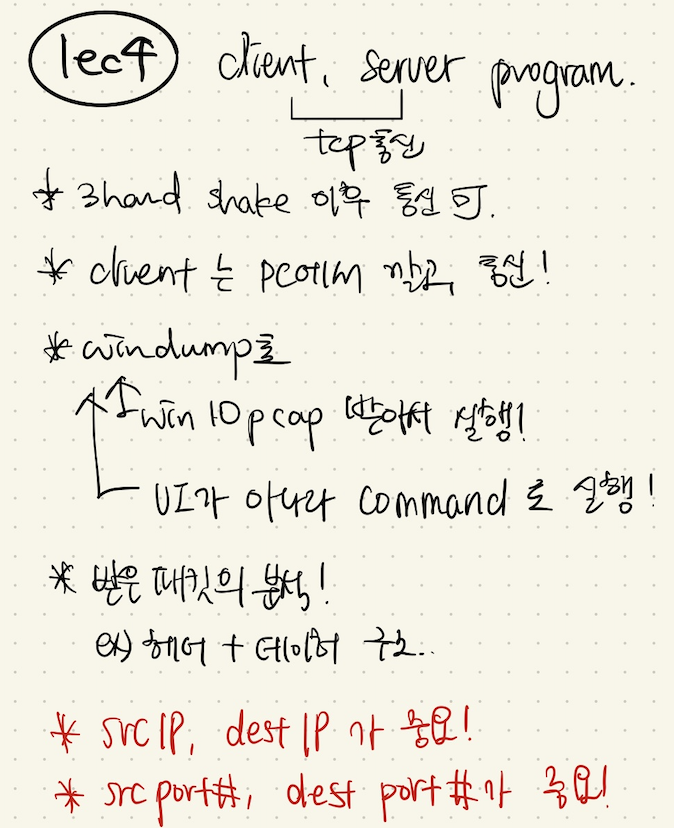 lec4 client, server program.
tcp통신
* 3hand shake 이후 통신 可.
* client 는 PC에서 깔고, 통신!
* windump로
win 10 pcap 받아서 실행!
UI가 아니라 command 로 실행!
* 받은 패킷의 분석!
ex) 헤더 + 데이터 구조..
* src IP, dest IP 가 중요!
* src port#, dest port#가 중요!